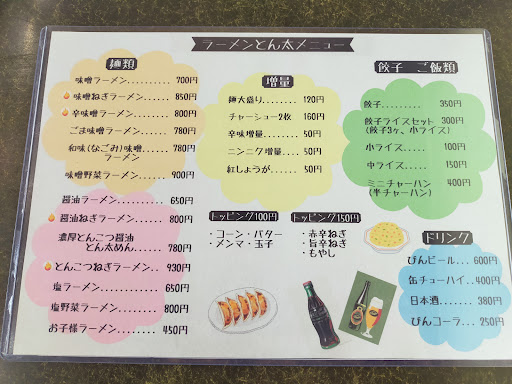 ラーメンとん太メニュー
麺類
味噌ラーメン.......... 700円
味噌ねぎラーメン...... 850円
辛味噌ラーメン........ 780円
ごま味噌ラーメン...... 780円
和味(なごみ)味噌....... 780円
ラーメン
味噌野菜ラーメン...... 900円
醤油ラーメン........... 650円
醤油ねぎラーメン...... 800円
濃厚とんこつ醤油
とん太めん...... 780円
とんこつねぎラーメン.. 930円
塩ラーメン............. 650円
塩野菜ラーメン......... 800円
お子様ラーメン......... 450円
増量
麺大盛り........ 120円
チャーシュー2枚 160円
辛味増量........ 50円
ニンニク増量.... 50円
紅しょうが...... 50円
トッピング100円
・コーン・バター
・メンマ・玉子
トッピング150円
・赤辛ねぎ
・旨辛ねぎ
・もやし
餃子 ご飯類
餃子......... 350円
餃子ライスセット 300円
(餃子3ヶ、小ライス)
小ライス..... 100円
中ライス..... 150円
ミニチャーハン 400円
(半チャーハン)
ドリンク
びんビール... 600円
缶チューハイ..400円
日本酒....... 380円
びんコーラ... 250円